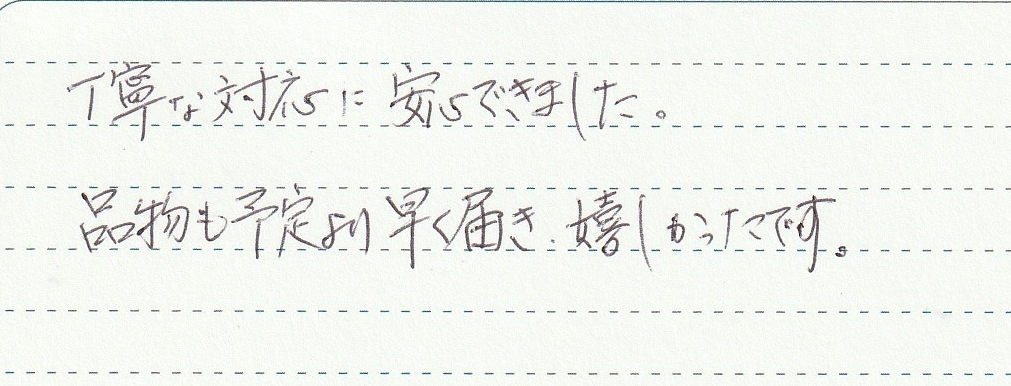 丁寧な対応に安心できました。
品物も予定より早く届き、嬉しかったです。